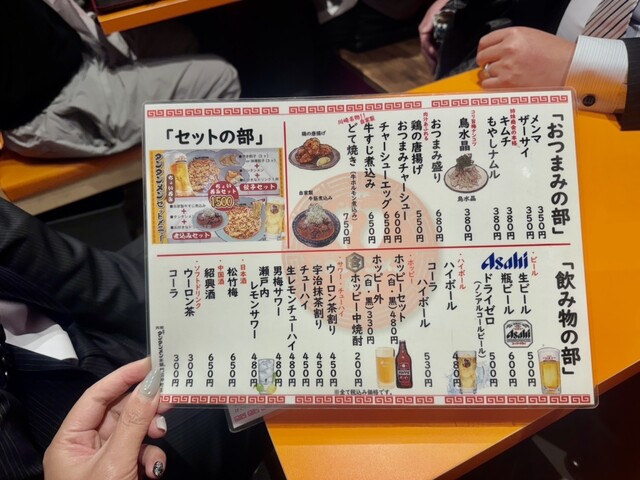 「おつまみの部」
メンマ 350円
ザーサイ 350円
キムチ 380円
もやしナムル 380円
鳥水晶 380円
鳥水晶
おつまみ盛り 680円
鶏の唐揚げ 550円
おつまみチャーシュー 600円
チャーシューエッグ 650円
牛すじ煮込み 650円
川崎名物!! 自家製
どて焼き(牛ホルモン煮込み) 750円
鶏の唐揚げ
自家製
牛筋煮込み
「セットの部」
ちょい呑みセット
1500
餃子セット
煮込みセット
「飲み物の部」
・ビール
Asahi
生ビール 550円
瓶ビール 600円
ドライゼロ 500円
(ノンアルコールビール)
・ハイボール
ハイボール 480円
コーラハイボール 530円
・ホッピー
ホッピーセット(白・黒) 480円
ホッピー外(白・黒) 330円
ホッピー中焼酎 200円
・サワー・チューハイ
ウーロン茶割り 450円
宇治抹茶割り 450円
チューハイ 450円
生レモンチューハイ 480円
男梅サワー 480円
瀬戸内レモンサワー 480円
・日本酒
松竹梅 650円
・中国酒
紹興酒 650円
・ソフトドリンク
ウーロン茶 300円
コーラ 300円
※全て税込み価格です。